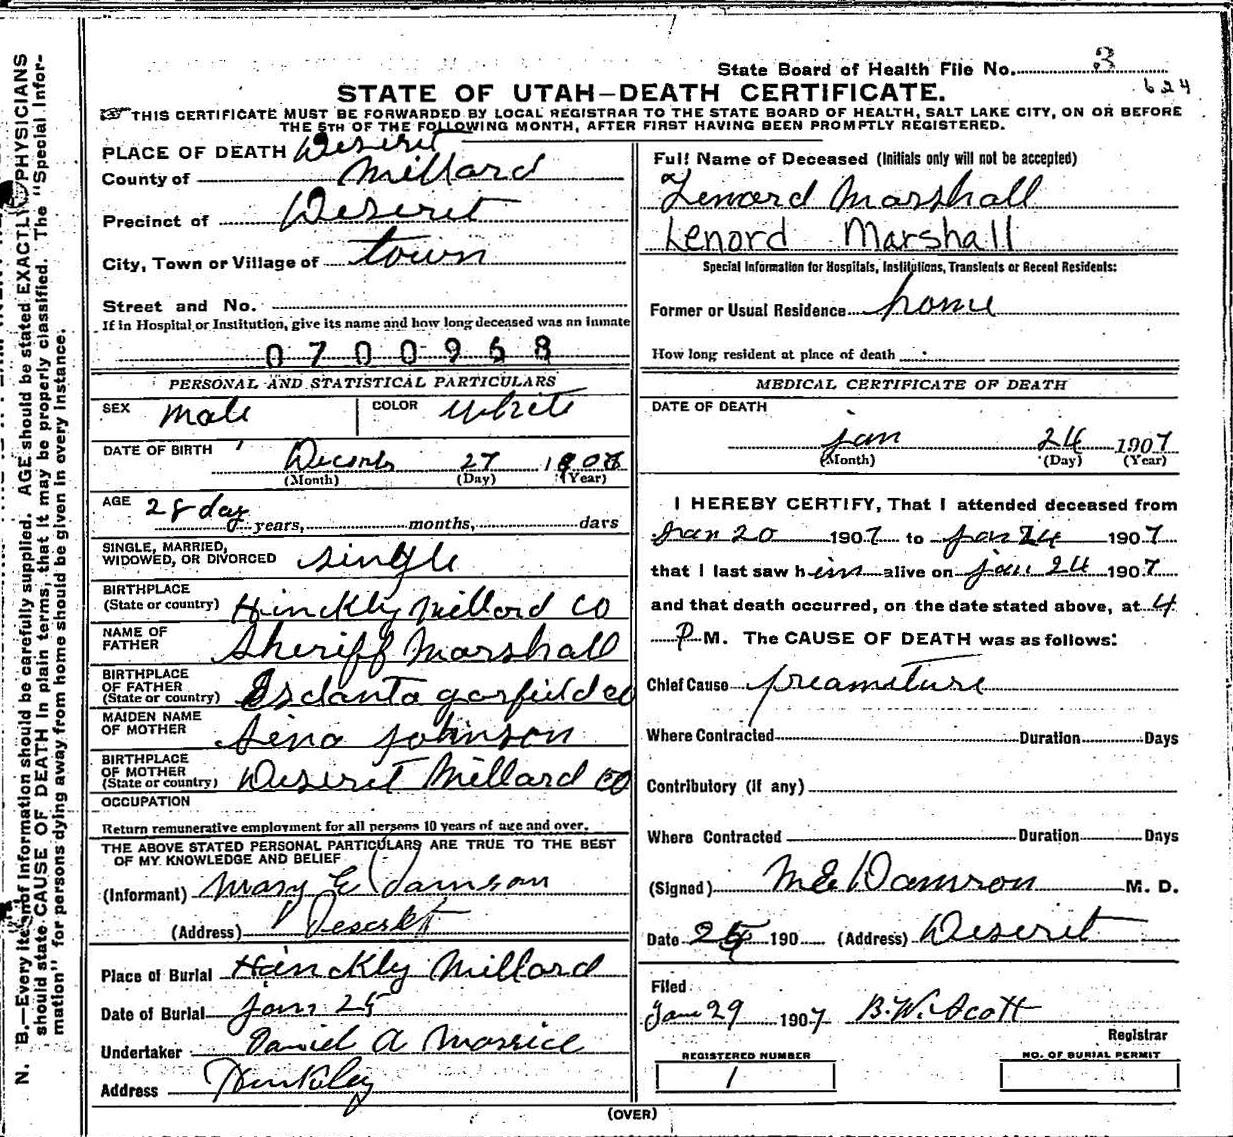 State Board of Health File No. 3
624
STATE OF UTAH—DEATH CERTIFICATE.
THIS CERTIFICATE MUST BE FORWARDED BY LOCAL REGISTRAR TO THE STATE BOARD OF HEALTH, SALT LAKE CITY, ON OR BEFORE
THE 5TH OF THE FOLLOWING MONTH, AFTER FIRST HAVING BEEN PROMPTLY REGISTERED.
PLACE OF DEATH Deserit
County of Millard
Precinct of Deserit
City, Town or Village of town
Street and No.
If in Hospital or Institution, give its name and how long deceased was an inmate
0700968
PERSONAL AND STATISTICAL PARTICULARS
SEX male COLOR white
DATE OF BIRTH 27
(Month) (Day) (Year)
AGE 28 day years, months, days
SINGLE, MARRIED,
WIDOWED, OR DIVORCED single
BIRTHPLACE
(State or country) Hinckly Millard CO
NAME OF
FATHER Sheriff Marshall
BIRTHPLACE
OF FATHER
(State or country) garfield co
MAIDEN NAME
OF MOTHER Johnson
BIRTHPLACE
OF MOTHER
(State or country) Deserit Millard CO
OCCUPATION
Return remunerative employment for all persons 10 years of age and over.
THE ABOVE STATED PERSONAL PARTICULARS ARE TRUE TO THE BEST
OF MY KNOWLEDGE AND BELIEF
(Informant) Mary E
(Address)
Place of Burial Hinckly Millard
Date of Burial Jan 25
Undertaker Daniel A
Address
Full Name of Deceased (Initials only will not be accepted)
Lenord Marshall
Lenord Marshall
Special Information for Hospitals, Institutions, Transients or Recent Residents:
Former or Usual Residence home
How long resident at place of death
MEDICAL CERTIFICATE OF DEATH
DATE OF DEATH
jan 24 1907
(Month) (Day) (Year)
I HEREBY CERTIFY, That I attended deceased from
Jan 20 1907 to jan 24 1907
that I last saw him alive on jan 24 1907
and that death occurred, on the date stated above, at 4
P M. The CAUSE OF DEATH was as follows:
Chief Cause preamiture
Where Contracted Duration Days
Contributory (if any)
Where Contracted Duration Days
(Signed) M E Damron M. D.
Date 190 (Address) Deserit
Filed
Jan 29 1907 B.W. Scott
Registrar
REGISTERED NUMBER
1
NO. OF BURIAL PERMIT
(OVER)
N. B.—Every item of information should be carefully supplied. AGE should be stated EXACTLY. PHYSICIANS
should state CAUSE OF DEATH in plain terms, that it may be properly classified. The "Special Infor-
mation" for persons dying away from home should be given in every instance.